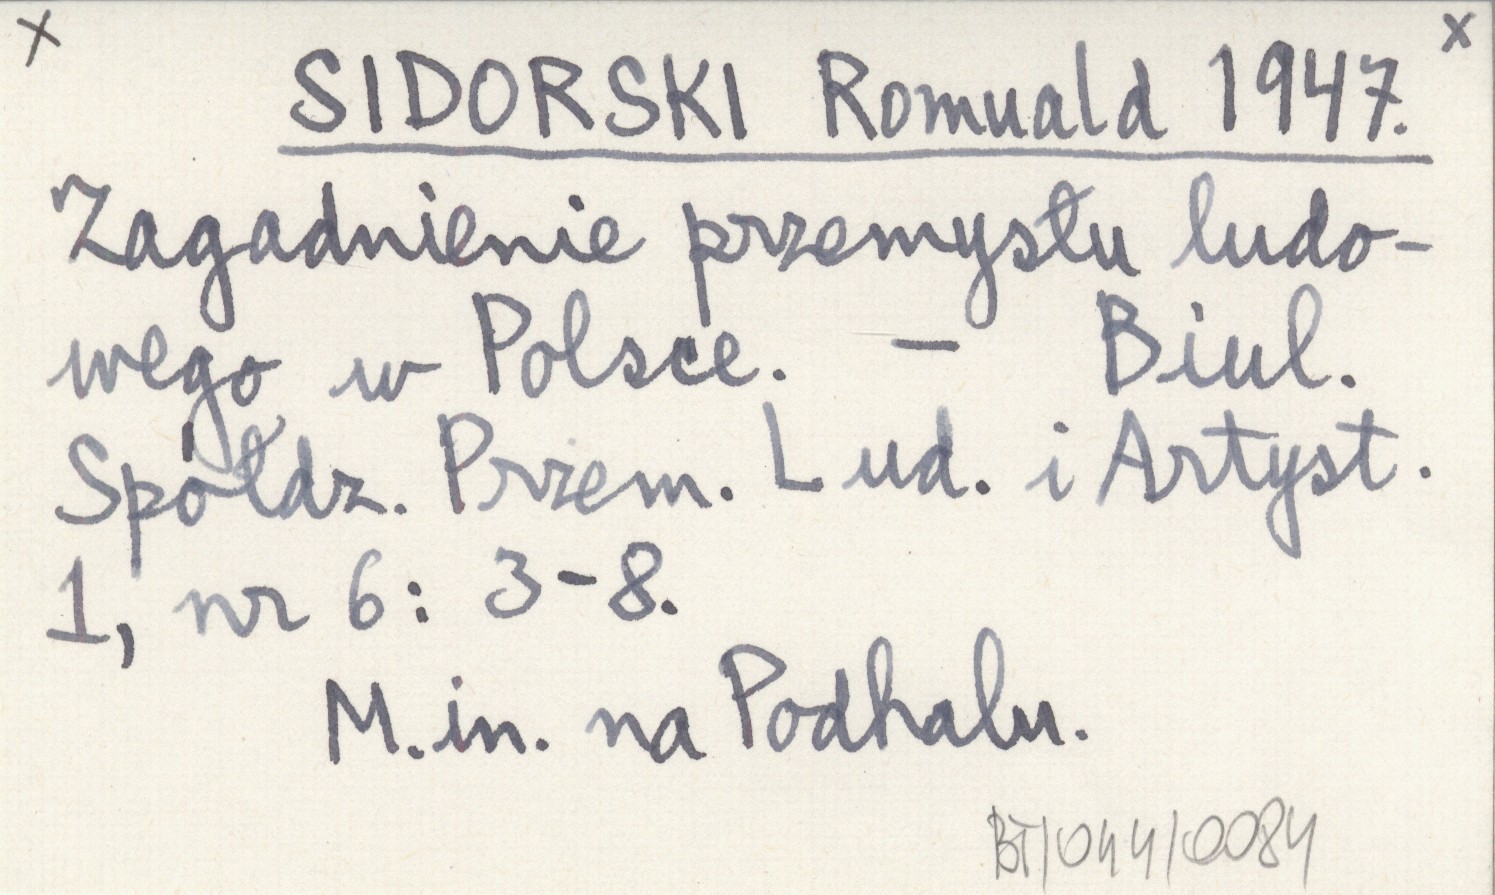 x x
SIDORSKI Romuald 1947.
Zagadnienie przemysłu ludo-
wego w Polsce. — Biul.
Spółdz. Przem. Lud. i Artyst.
1, nr 6: 3-8.
M.in. na Podhalu.
BT/044/0084